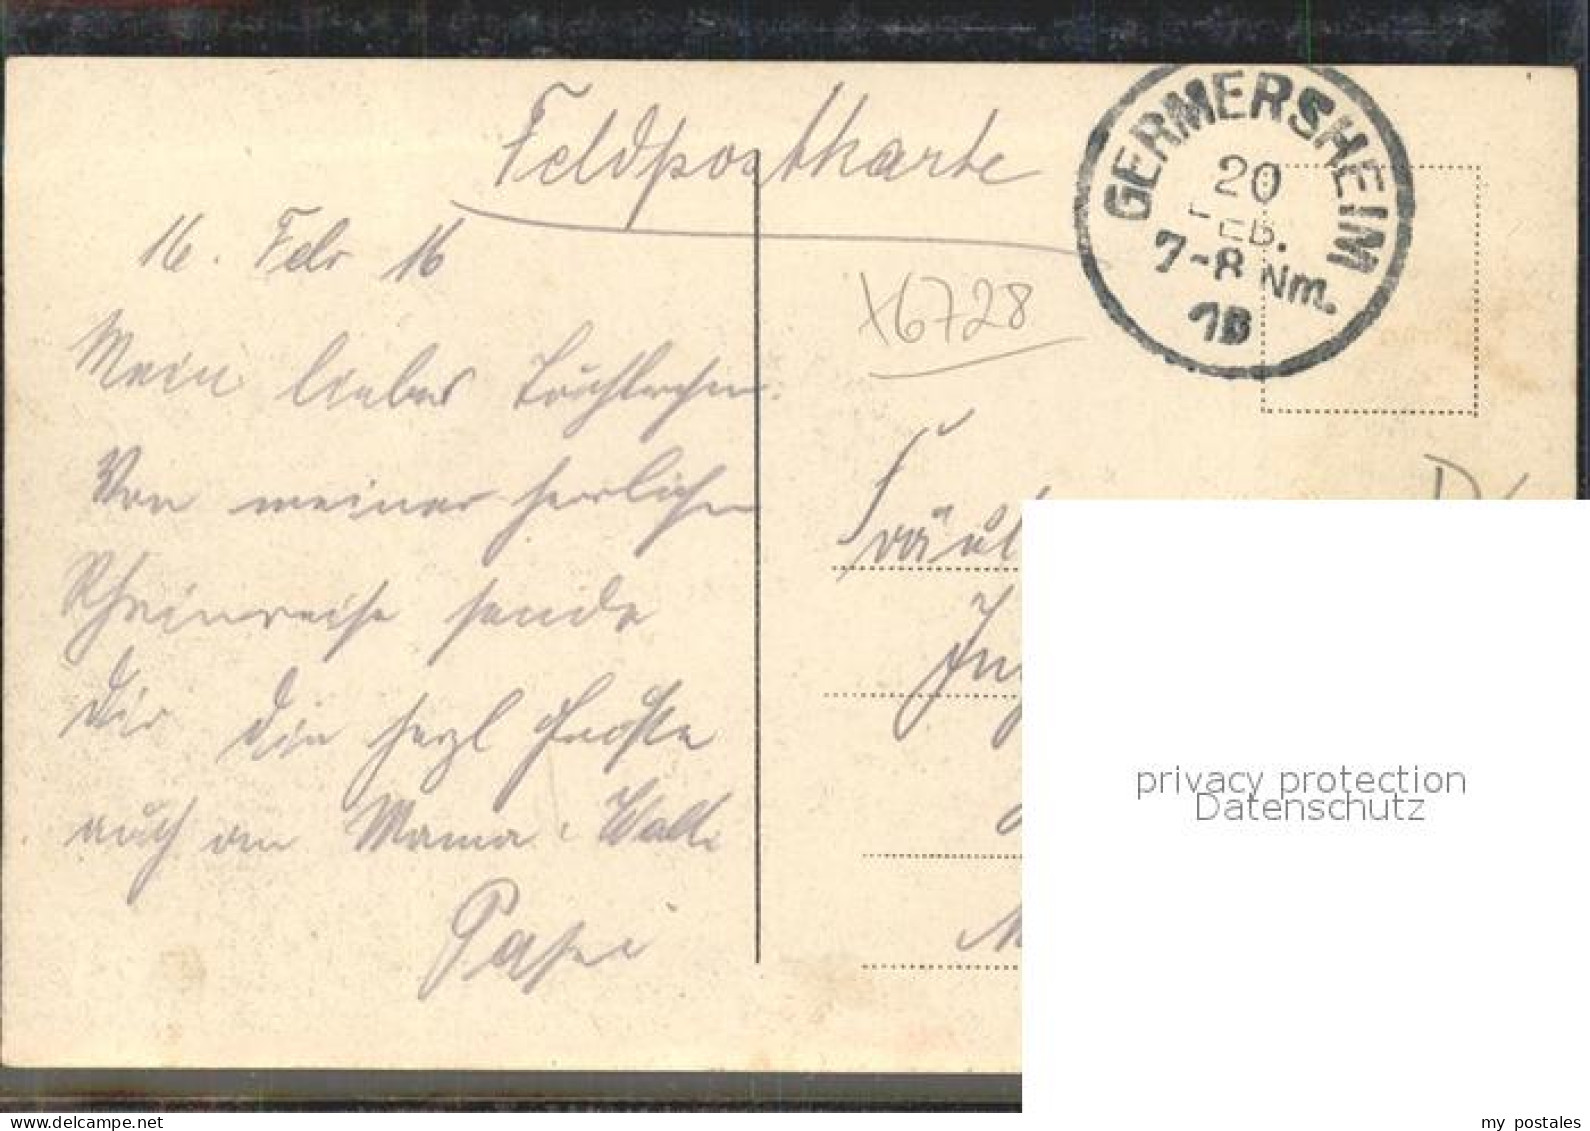 Feldpostkarte
16. Febr 16
Mein liebes Töchterchen.
Von meiner herrlichen
Rheinreise sende
Dir die herzl Grüße
auch an Mama
GERMERSHEIM
20
FEB.
7-8 Nm.
16
X6728
Fräul
privacy protection
Datenschutz
my postales